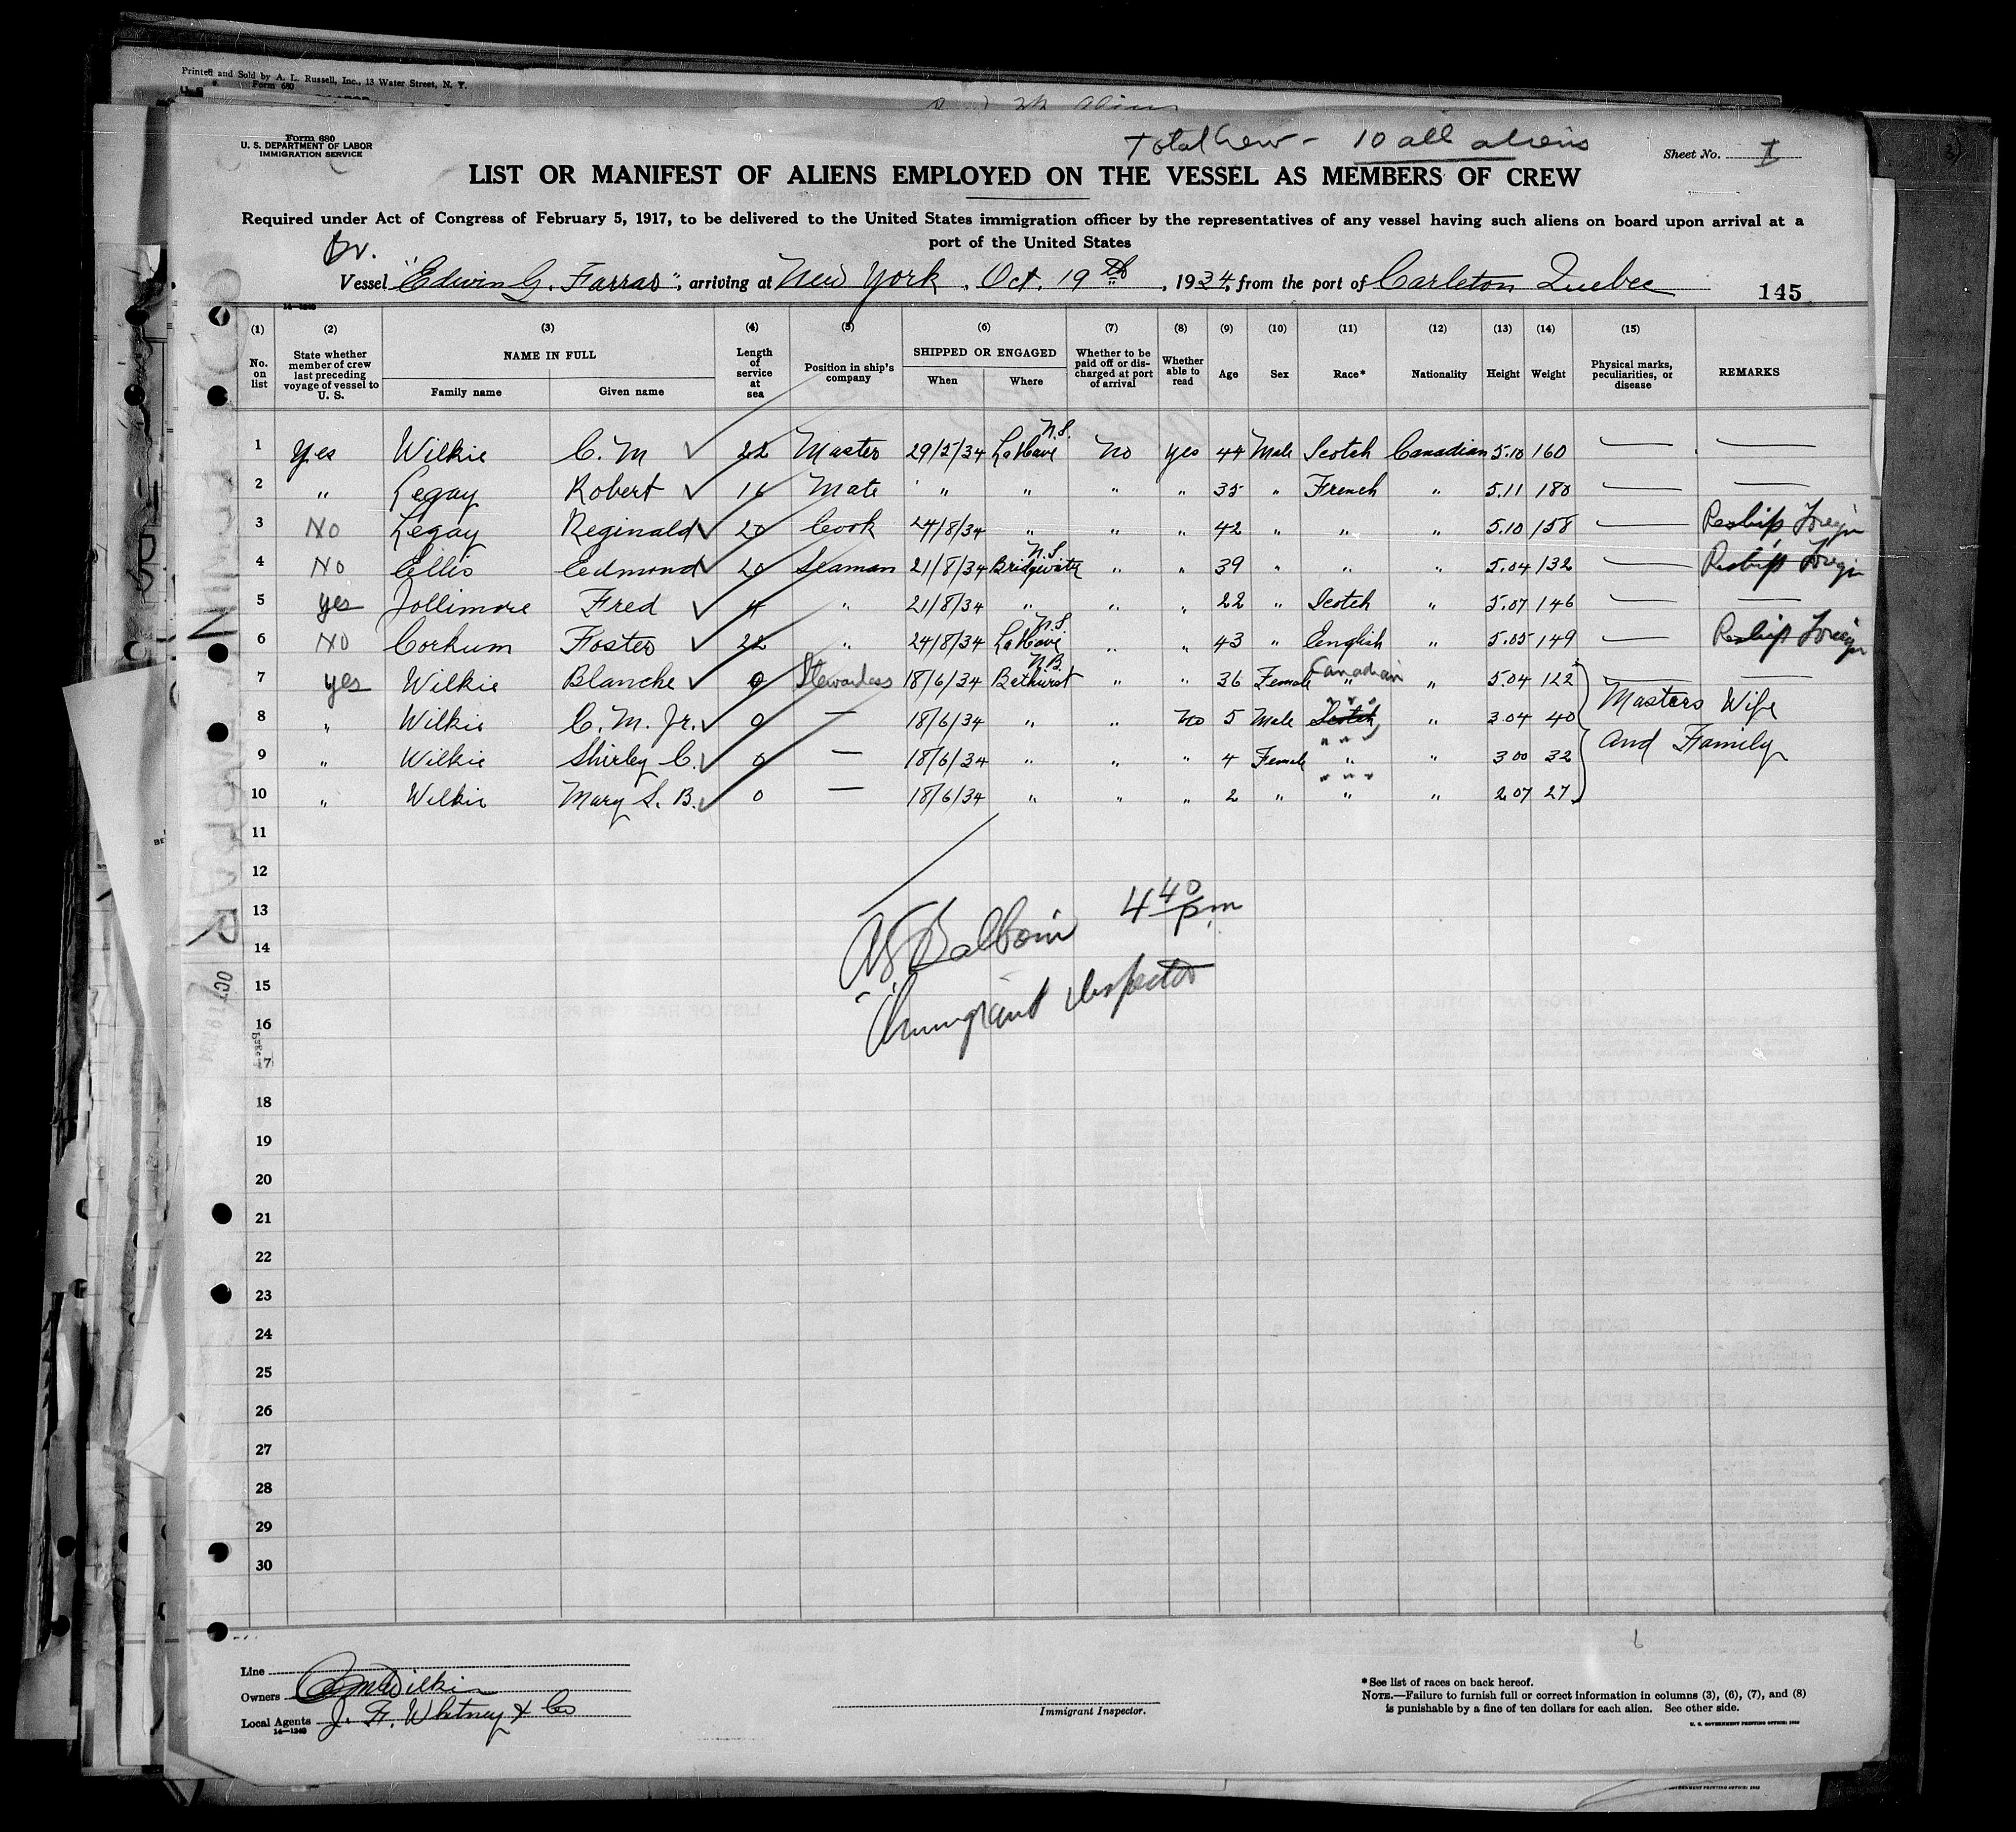 Printed and Sold by A. L. Russell, Inc., 13 Water Street, N. Y.
Form 680
Form 680
U. S. DEPARTMENT OF LABOR
IMMIGRATION SERVICE
Total Crew - 10 all aliens
Sheet No. I
LIST OR MANIFEST OF ALIENS EMPLOYED ON THE VESSEL AS MEMBERS OF CREW
Required under Act of Congress of February 5, 1917, to be delivered to the United States immigration officer by the representatives of any vessel having such aliens on board upon arrival at a
port of the United States
Br.
Vessel "Edwin G. Farrar", arriving at New York, Oct. 19th, 1934, from the port of Carleton Quebec
145
(1) (2) (3) (4) (5) (6) (7) (8) (9) (10) (11) (12) (13) (14) (15)
No. on list
State whether member of crew last preceding voyage of vessel to U. S.
NAME IN FULL
Family name
Given name
Length of service at sea
Position in ship's company
SHIPPED OR ENGAGED
When
Where
Whether to be paid off or discharged at port of arrival
Whether able to read
Age
Sex
Race*
Nationality
Height
Weight
Physical marks, peculiarities, or disease
REMARKS
1 Yes Wilkie C. M 22 Master 29/5/34 LaHave N.S. No Yes 44 Male Scotch Canadian 5.10 160 — —
2 " Legay Robert 16 Mate " " " " 35 " French " 5.11 180 — —
3 No Legay Reginald 20 Cook 24/8/34 " " " 42 " " " 5.10 158 — Reship Foreign
4 No Ellis Edmond 20 Seaman 21/8/34 Bridgewater N.S. " " 39 " " " 5.04 132 — Reship Foreign
5 yes Jollimore Fred 4 " 21/8/34 " " " 22 " Scotch " 5.07 146 — —
6 No Corkum Foster 22 " 24/8/34 LaHave N.S. " " 43 " English " 5.05 149 — Reship Foreign
7 yes Wilkie Blanche 0 Stewardess 18/6/34 Bathurst N.B. " " 36 Female Canadian " " 5.04 122 — —
8 " Wilkie C. M. Jr. 0 — 18/6/34 " " No 5 Male " " " Scotch " 3.04 40 Masters Wife
9 " Wilkie Shirley C. 0 — 18/6/34 " " " 4 Female " " " " " 3 00 32 and Family
10 " Wilkie Mary S. B. 0 — 18/6/34 " " " 2 " " " " " " 2.07 27
11
12
13
4 40 pm
14
15
Immigrant Inspector
16
17
18
19
20
21
22
23
24
25
26
27
28
29
30
OCT 19 1934
Line
Owners C M Wilkie
Local Agents J. F. Whitney & Co
14—1240
Immigrant Inspector.
*See list of races on back hereof.
NOTE.—Failure to furnish full or correct information in columns (3), (6), (7), and (8)
is punishable by a fine of ten dollars for each alien. See other side.
U. S. GOVERNMENT PRINTING OFFICE